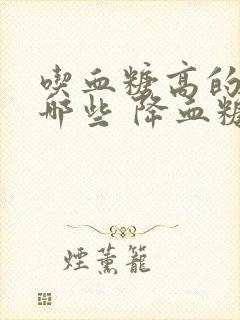 喫血糖高的
哪些 降血糖
煙薰籠